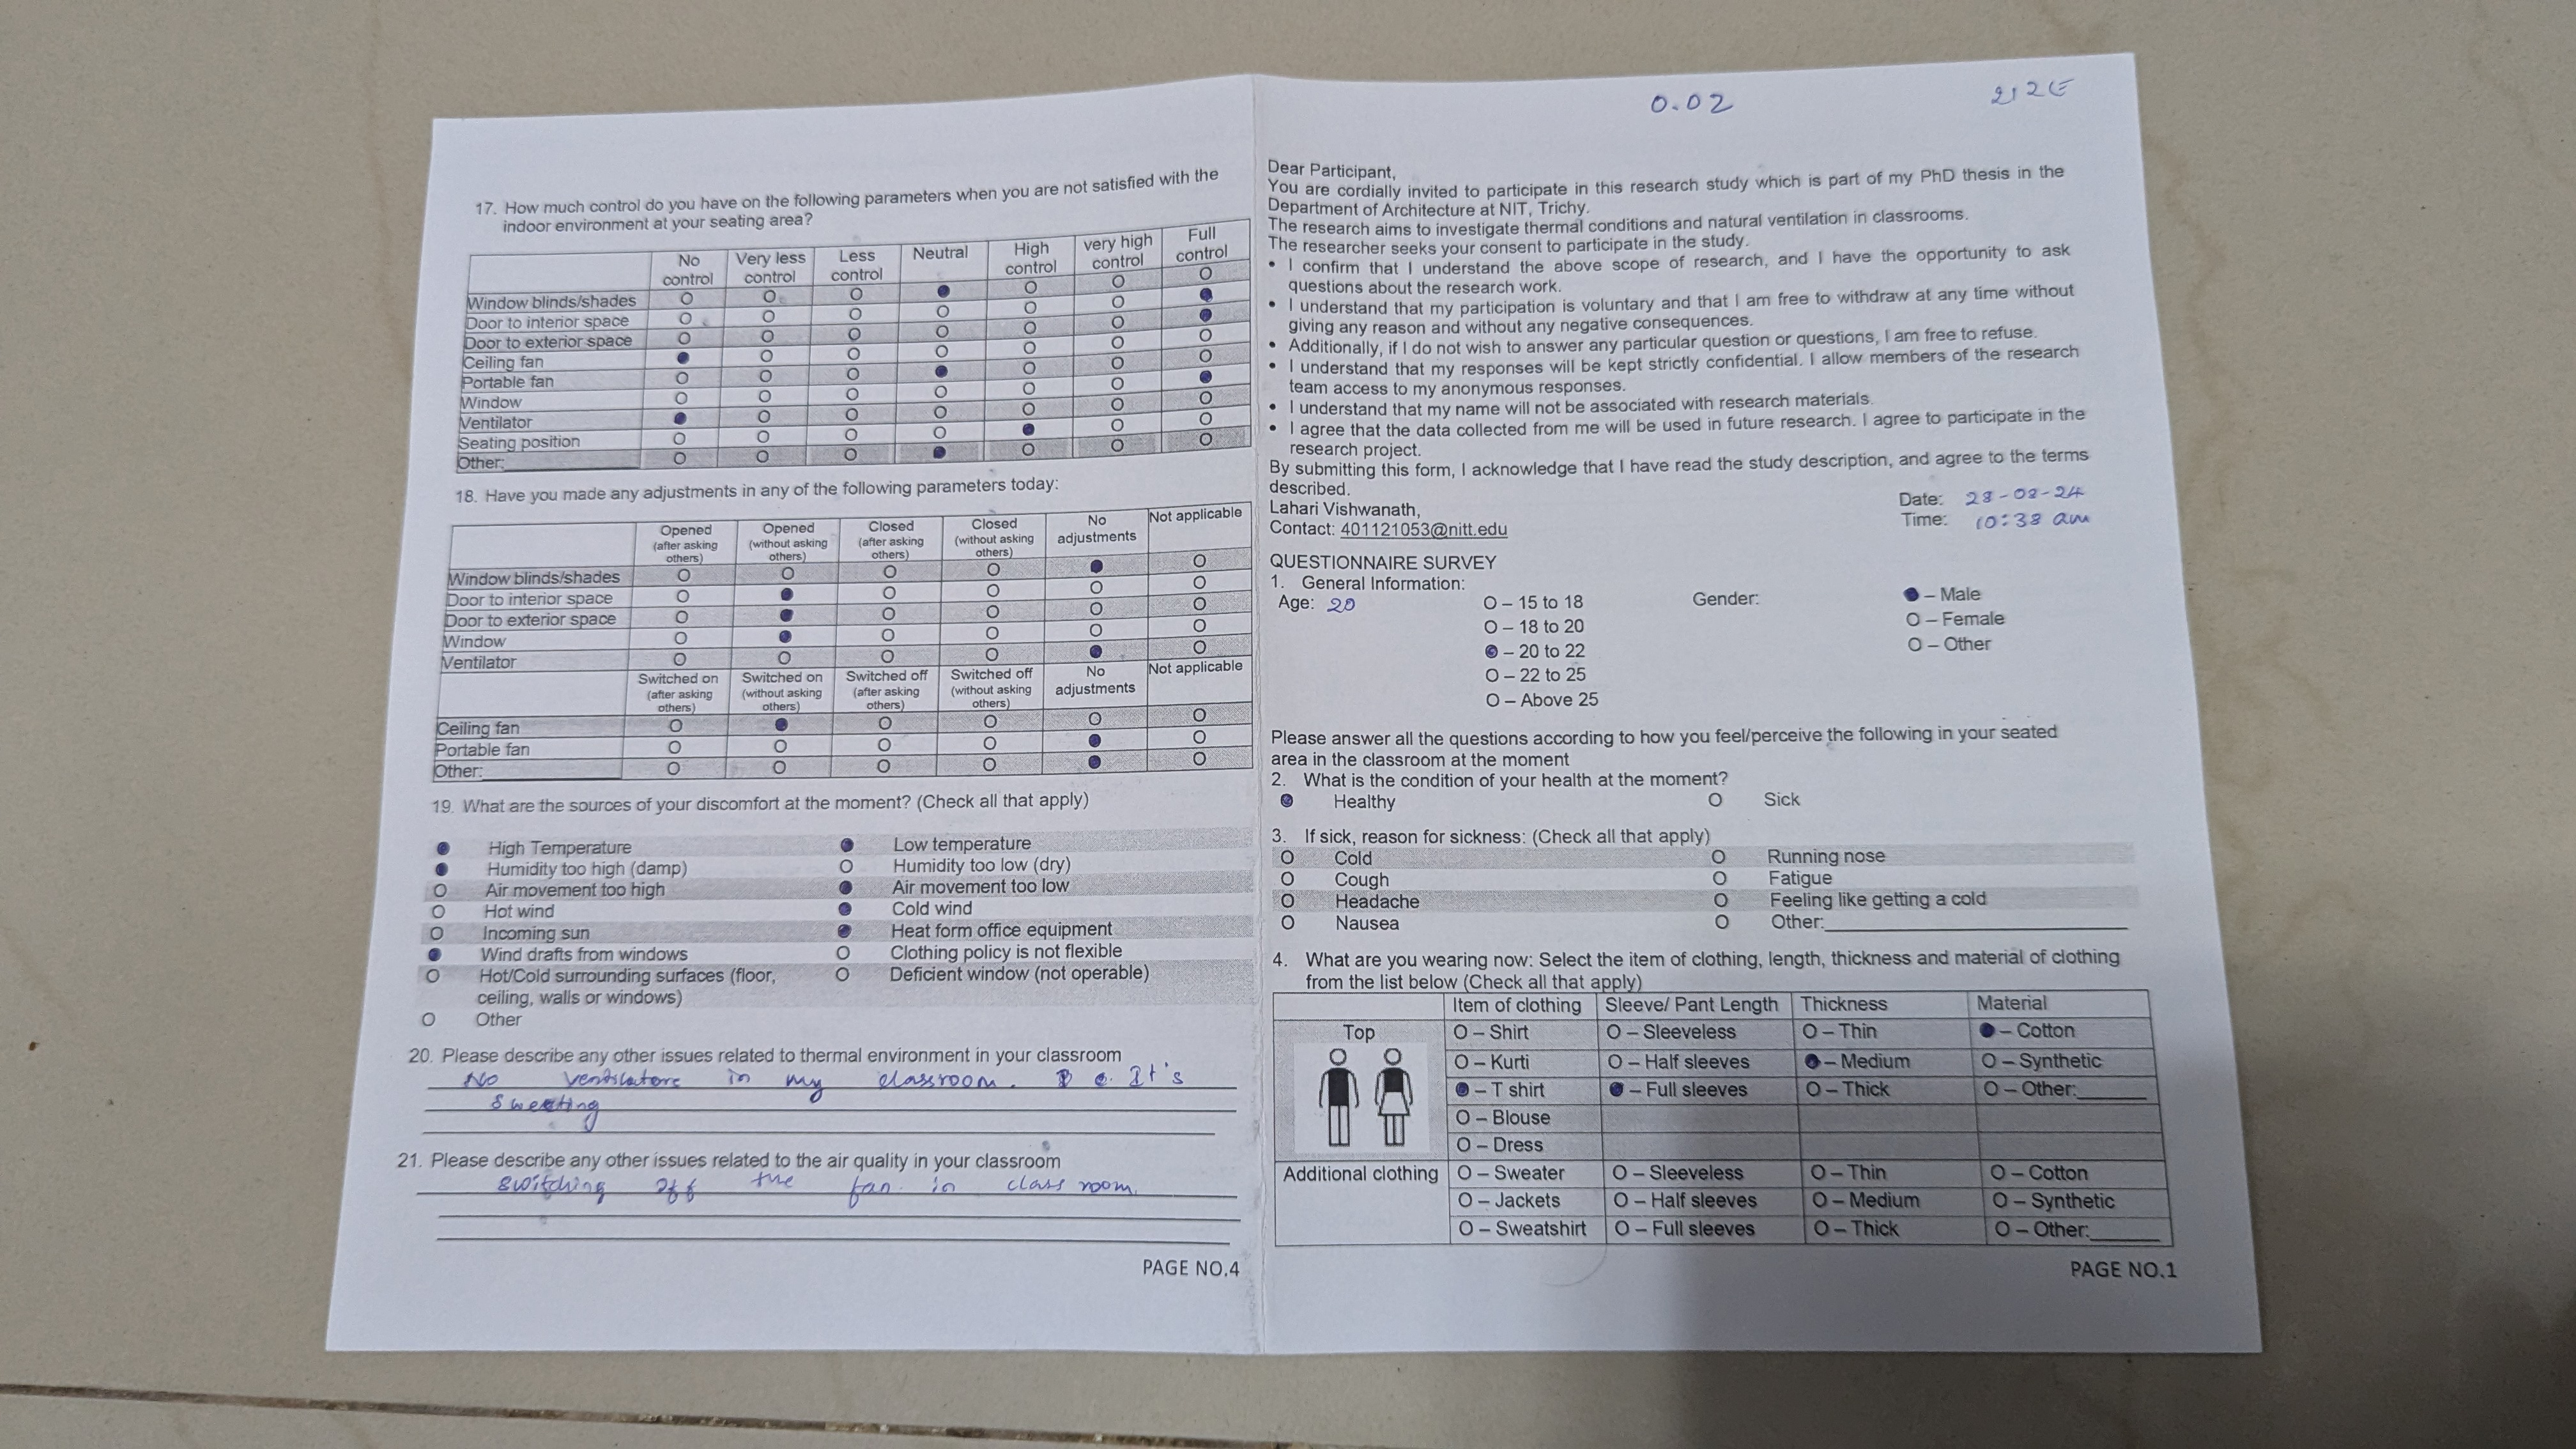 17. How much control do you have on the following parameters when you are not satisfied with the
indoor environment at your seating area?
No control Very less control Less control Neutral High control very high control Full control
Window blinds/shades O O O ● O O O
Door to interior space O O O O O O ●
Door to exterior space O O O O O O ●
Ceiling fan ● O O O O O O
Portable fan O O O ● O O O
Window O O O O O O ●
Ventilator ● O O O O O O
Seating position O O O O ● O O
Other: O O O ● O O O
18. Have you made any adjustments in any of the following parameters today:
Opened (after asking others) Opened (without asking others) Closed (after asking others) Closed (without asking others) No adjustments Not applicable
Window blinds/shades O O O O ● O
Door to interior space O ● O O O O
Door to exterior space O ● O O O O
Window O ● O O O O
Ventilator O O O O ● O
Switched on (after asking others) Switched on (without asking others) Switched off (after asking others) Switched off (without asking others) No adjustments Not applicable
Ceiling fan O ● O O O O
Portable fan O O O O ● O
Other: O O O O ● O
19. What are the sources of your discomfort at the moment? (Check all that apply)
● High Temperature ● Low temperature
● Humidity too high (damp) O Humidity too low (dry)
O Air movement too high ● Air movement too low
O Hot wind ● Cold wind
O Incoming sun ● Heat form office equipment
● Wind drafts from windows O Clothing policy is not flexible
O Hot/Cold surrounding surfaces (floor, O Deficient window (not operable)
ceiling, walls or windows)
O Other
20. Please describe any other issues related to thermal environment in your classroom
No ventilators in my classroom. It's
sweating
21. Please describe any other issues related to the air quality in your classroom
switching off the fan in class room.
PAGE NO.4
0.02 212E
Dear Participant,
You are cordially invited to participate in this research study which is part of my PhD thesis in the
Department of Architecture at NIT, Trichy.
The research aims to investigate thermal conditions and natural ventilation in classrooms.
The researcher seeks your consent to participate in the study.
• I confirm that I understand the above scope of research, and I have the opportunity to ask
questions about the research work.
• I understand that my participation is voluntary and that I am free to withdraw at any time without
giving any reason and without any negative consequences.
• Additionally, if I do not wish to answer any particular question or questions, I am free to refuse.
• I understand that my responses will be kept strictly confidential. I allow members of the research
team access to my anonymous responses.
• I understand that my name will not be associated with research materials.
• I agree that the data collected from me will be used in future research. I agree to participate in the
research project.
By submitting this form, I acknowledge that I have read the study description, and agree to the terms
described.
Lahari Vishwanath,
Contact: 401121053@nitt.edu
Date: 28-08-24
Time: 10:38 am
QUESTIONNAIRE SURVEY
1. General Information:
Age: 20 O – 15 to 18 Gender: ● – Male
O – 18 to 20 O – Female
● – 20 to 22 O – Other
O – 22 to 25
O – Above 25
Please answer all the questions according to how you feel/perceive the following in your seated
area in the classroom at the moment
2. What is the condition of your health at the moment?
● Healthy O Sick
3. If sick, reason for sickness: (Check all that apply)
O Cold O Running nose
O Cough O Fatigue
O Headache O Feeling like getting a cold
O Nausea O Other:
4. What are you wearing now: Select the item of clothing, length, thickness and material of clothing
from the list below (Check all that apply)
Item of clothing Sleeve/ Pant Length Thickness Material
Top O – Shirt O – Sleeveless O – Thin ● – Cotton
O – Kurti O – Half sleeves ● – Medium O – Synthetic
● – T shirt ● – Full sleeves O – Thick O – Other:
O – Blouse
O – Dress
Additional clothing O – Sweater O – Sleeveless O – Thin O – Cotton
O – Jackets O – Half sleeves O – Medium O – Synthetic
O – Sweatshirt O – Full sleeves O – Thick O – Other:
PAGE NO.1